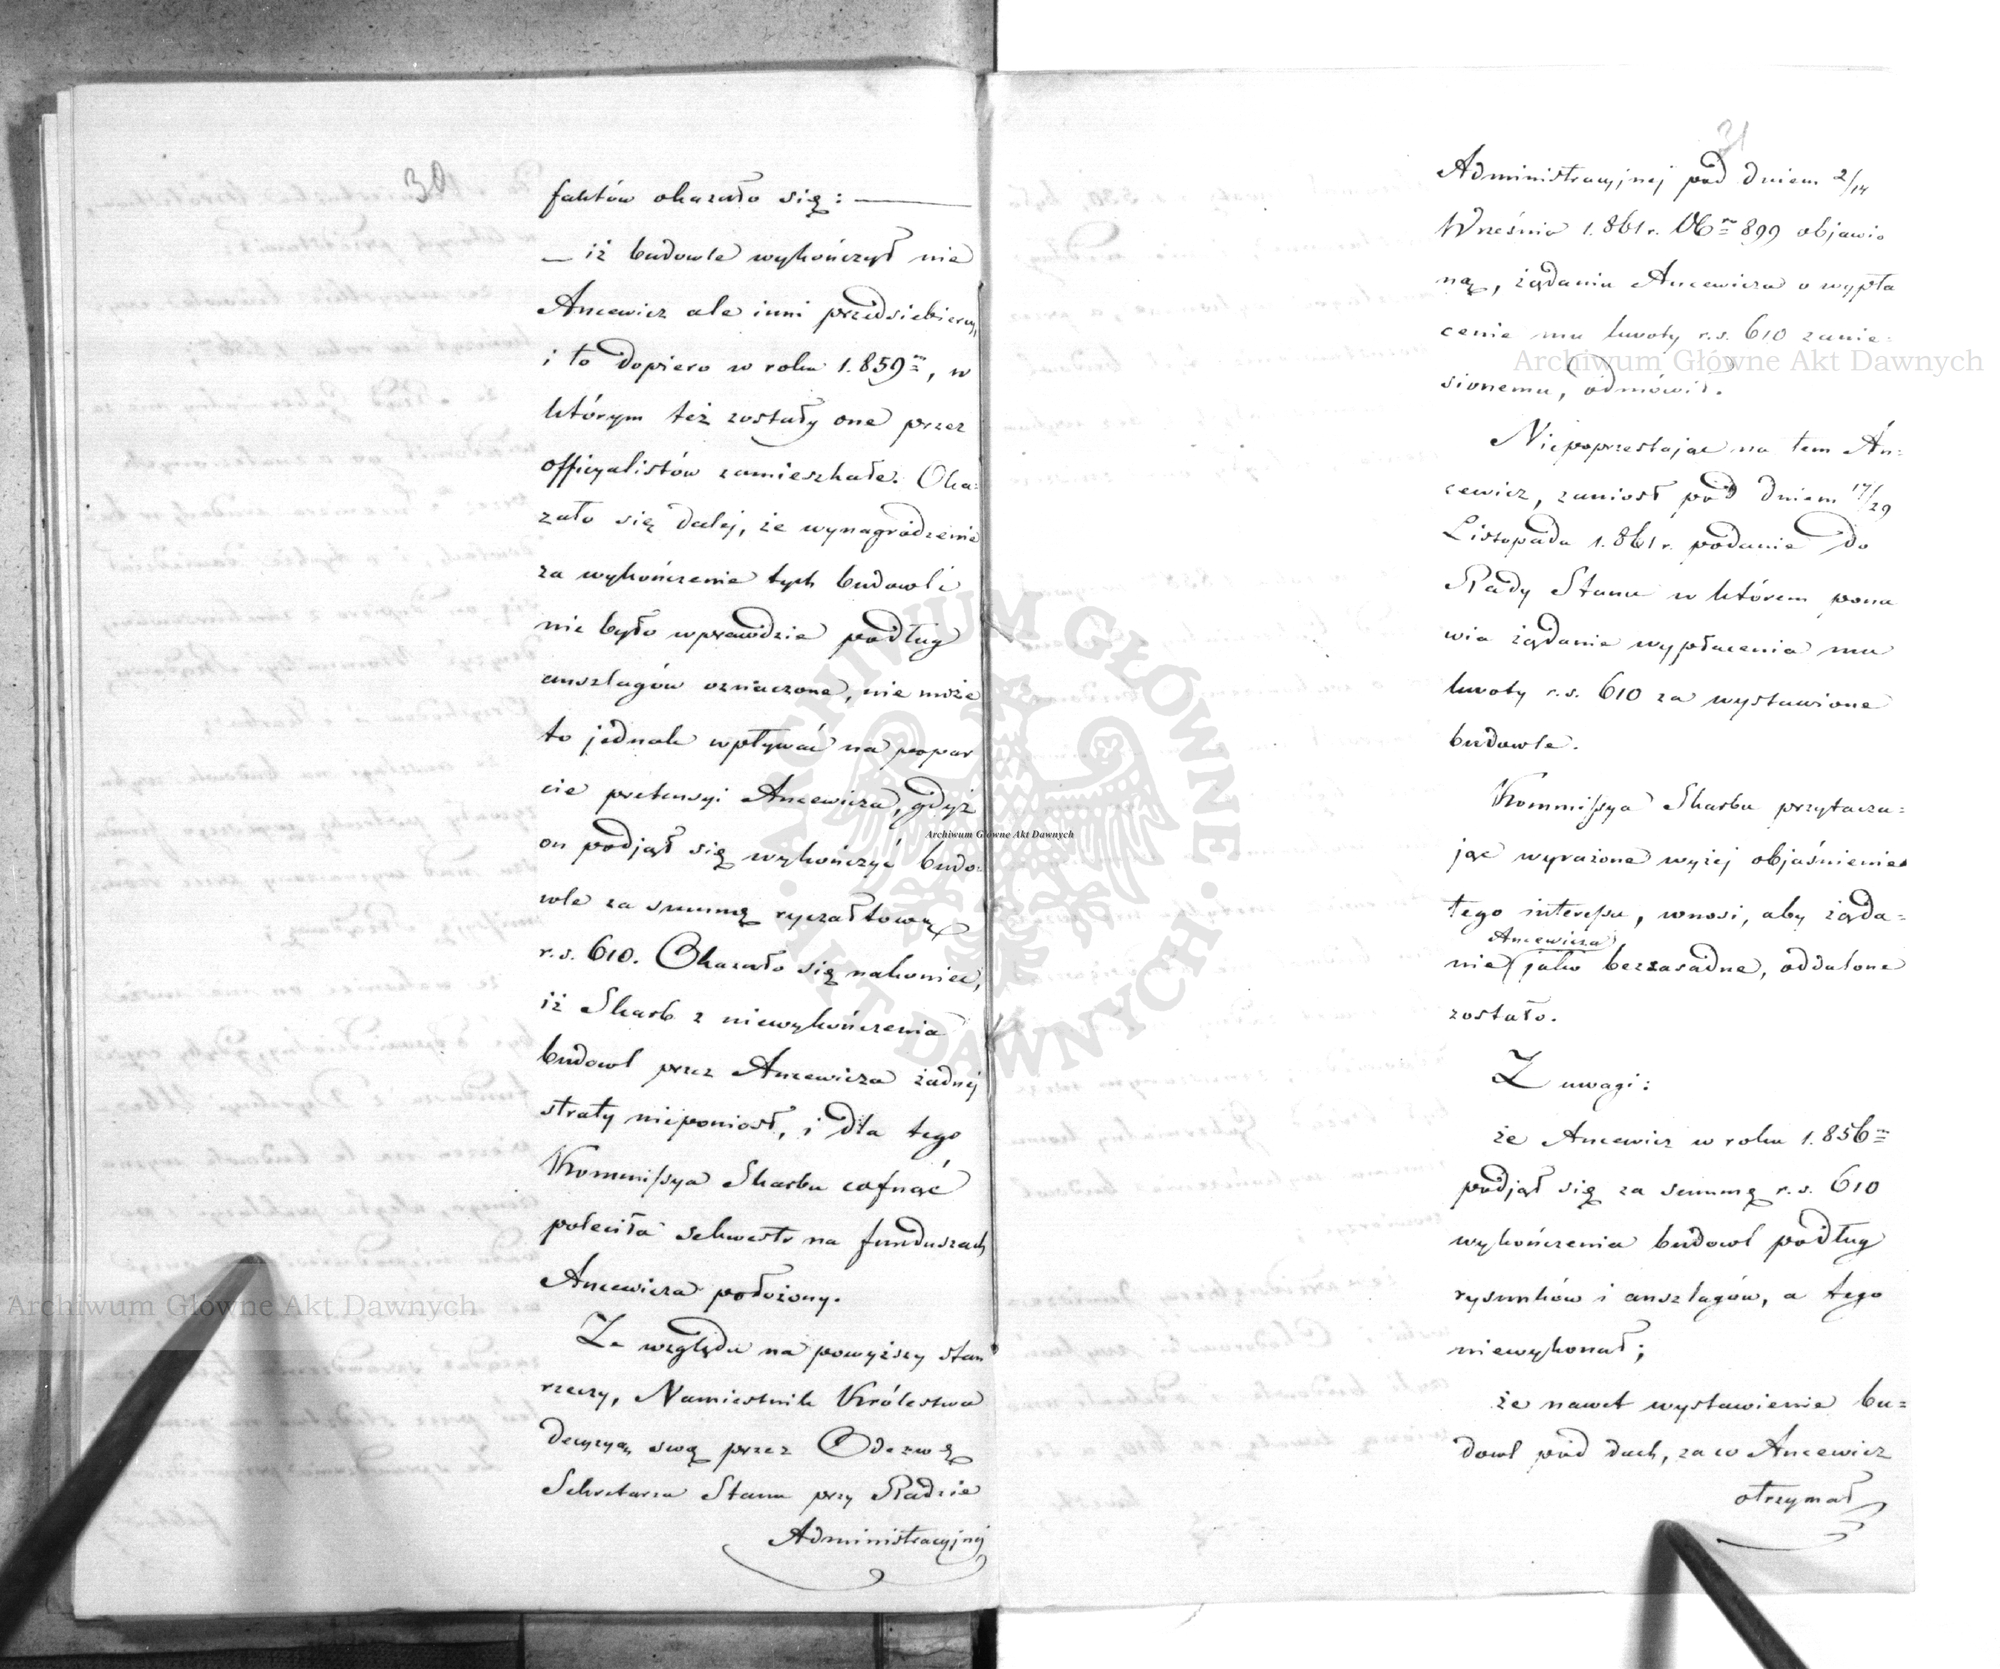 30
faktów okazało się: —
— iż budowle wykończył nie
Ancewicz ale inni przedsiebiercy,
i to dopiero w roku 1.859ᵐ, w
którym też zostały one przez
officyalistów zamieszkałe. Oka=
zało się dalej, że wynagrodzenie
za wykończenie tych budowli
nie było wprawdzie podług
anszlagów oznaczone, nie może
to jednak wpływać na popar
cie pretensyi Ancewicza, gdyż
on podjął się wykończyć budo=
wle za summę ryczałtową
r.s. 610. Okazało się nakoniec,
iż Skarb z niewykończenia
budowl przez Ancewicza żadnej
straty nieponiosł, i dla tego
Kommissya Skarbu cofnąć
poleciła sekwestr na funduszach
Ancewicza położony.
Ze względu na powyższy stan
rzeczy, Namiestnik Królestwa
decyzyą swą przez Odezwę
Sekretarza Stanu przy Radzie
Administracyjnej
31
Administracyjnej pod dniem 2/14
Września 1.861 r. Nr 899 objawio
ną, żądaniu Ancewicza o wypła
cenie mu kwoty r.s. 610 zanie=
sionemu, odmówił.
Niepoprzestając na tem An=
cewicz, zaniosł pod dniem 17/29
Listopada 1.861 r. podanie do
Rady Stanu w którem pona
wia żądanie wypłacenia mu
kwoty r.s. 610 za wystawione
budowle.
Kommissya Skarbu przytacza=
jąc wyrażone wyżej objaśnienie
tego interessu, wnosi, aby żąda=
Ancewicza
nie jako bezzasadne, oddalone
zostało.
Z uwagi:
że Ancewicz w roku 1.856ᵐ
podjął się za summę r.s. 610
wykończenia budowl podług
rysunków i anszlagów, a tego
niewykonał;
że nawet wystawienie bu=
dowl pod dach, za co Ancewicz
otrzymał
Archiwum Główne Akt Dawnych
Archiwum Główne Akt Dawnych
Archiwum Główne Akt Dawnych
ARCHIWUM GŁÓWNE · AKT DAWNYCH ·